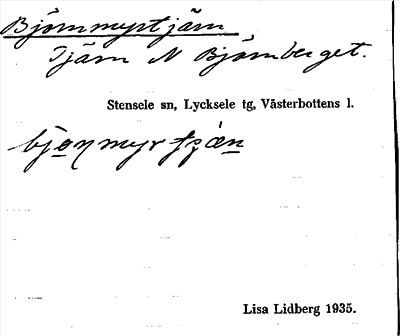 Björnmyrtjärn
Tjärn N Björnberget.
Stensele sn, Lycksele tg, Västerbottens l.
Lisa Lidberg 1935.